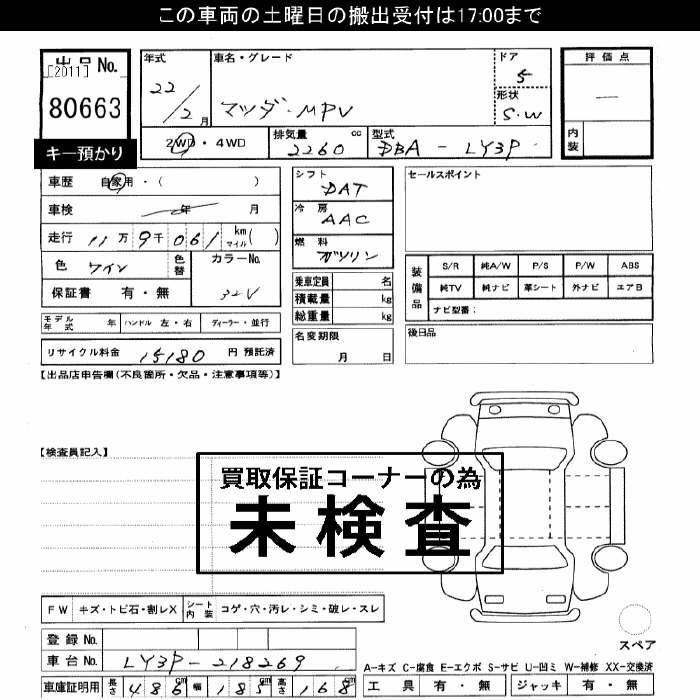 この車両の土曜日の搬出受付は17:00まで
出品 No.
[2011]
80663
キー預かり
年式
22/2月
車名・グレード
マツダ・MPV
ドア
5
形状
S.W
評価点
—
内装
2WD・4WD
排気量 2260 cc
型式 DBA-LY3P
車歴 自家用・( )
車検 年 月
走行 11万9千061 km マイル ( )
色 ワイン
色替
カラーNo.
32V
保証書 有・無
シフト
DAT
冷房
AAC
燃料
ガソリン
セールスポイント
乗車定員 名
積載量 kg
総重量 kg
装備品
S/R 純A/W P/S P/W ABS
純TV 純ナビ 革シート 外ナビ エアB
ナビ型番:
モデル年式 年 ハンドル 左・右 ディーラー・並行
名変期限
月 日
後日品
リサイクル料金 15180 円 預託済
【出品店申告欄(不良箇所・欠品・注意事項等)】
【検査員記入】
買取保証コーナーの為
未検査
FW キズ・トビ石・割レX シート内装 コゲ・穴・汚レ・シミ・破レ・スレ
スペア
登録 No.
車台 No. LY3P-218269
A-キズ C-腐食 E-エクボ S-サビ U-凹ミ W-補修 XX-交換済
車庫証明用 長さ 486 cm 幅 185 cm 高さ 168 cm
工具 有・無 ジャッキ 有・無